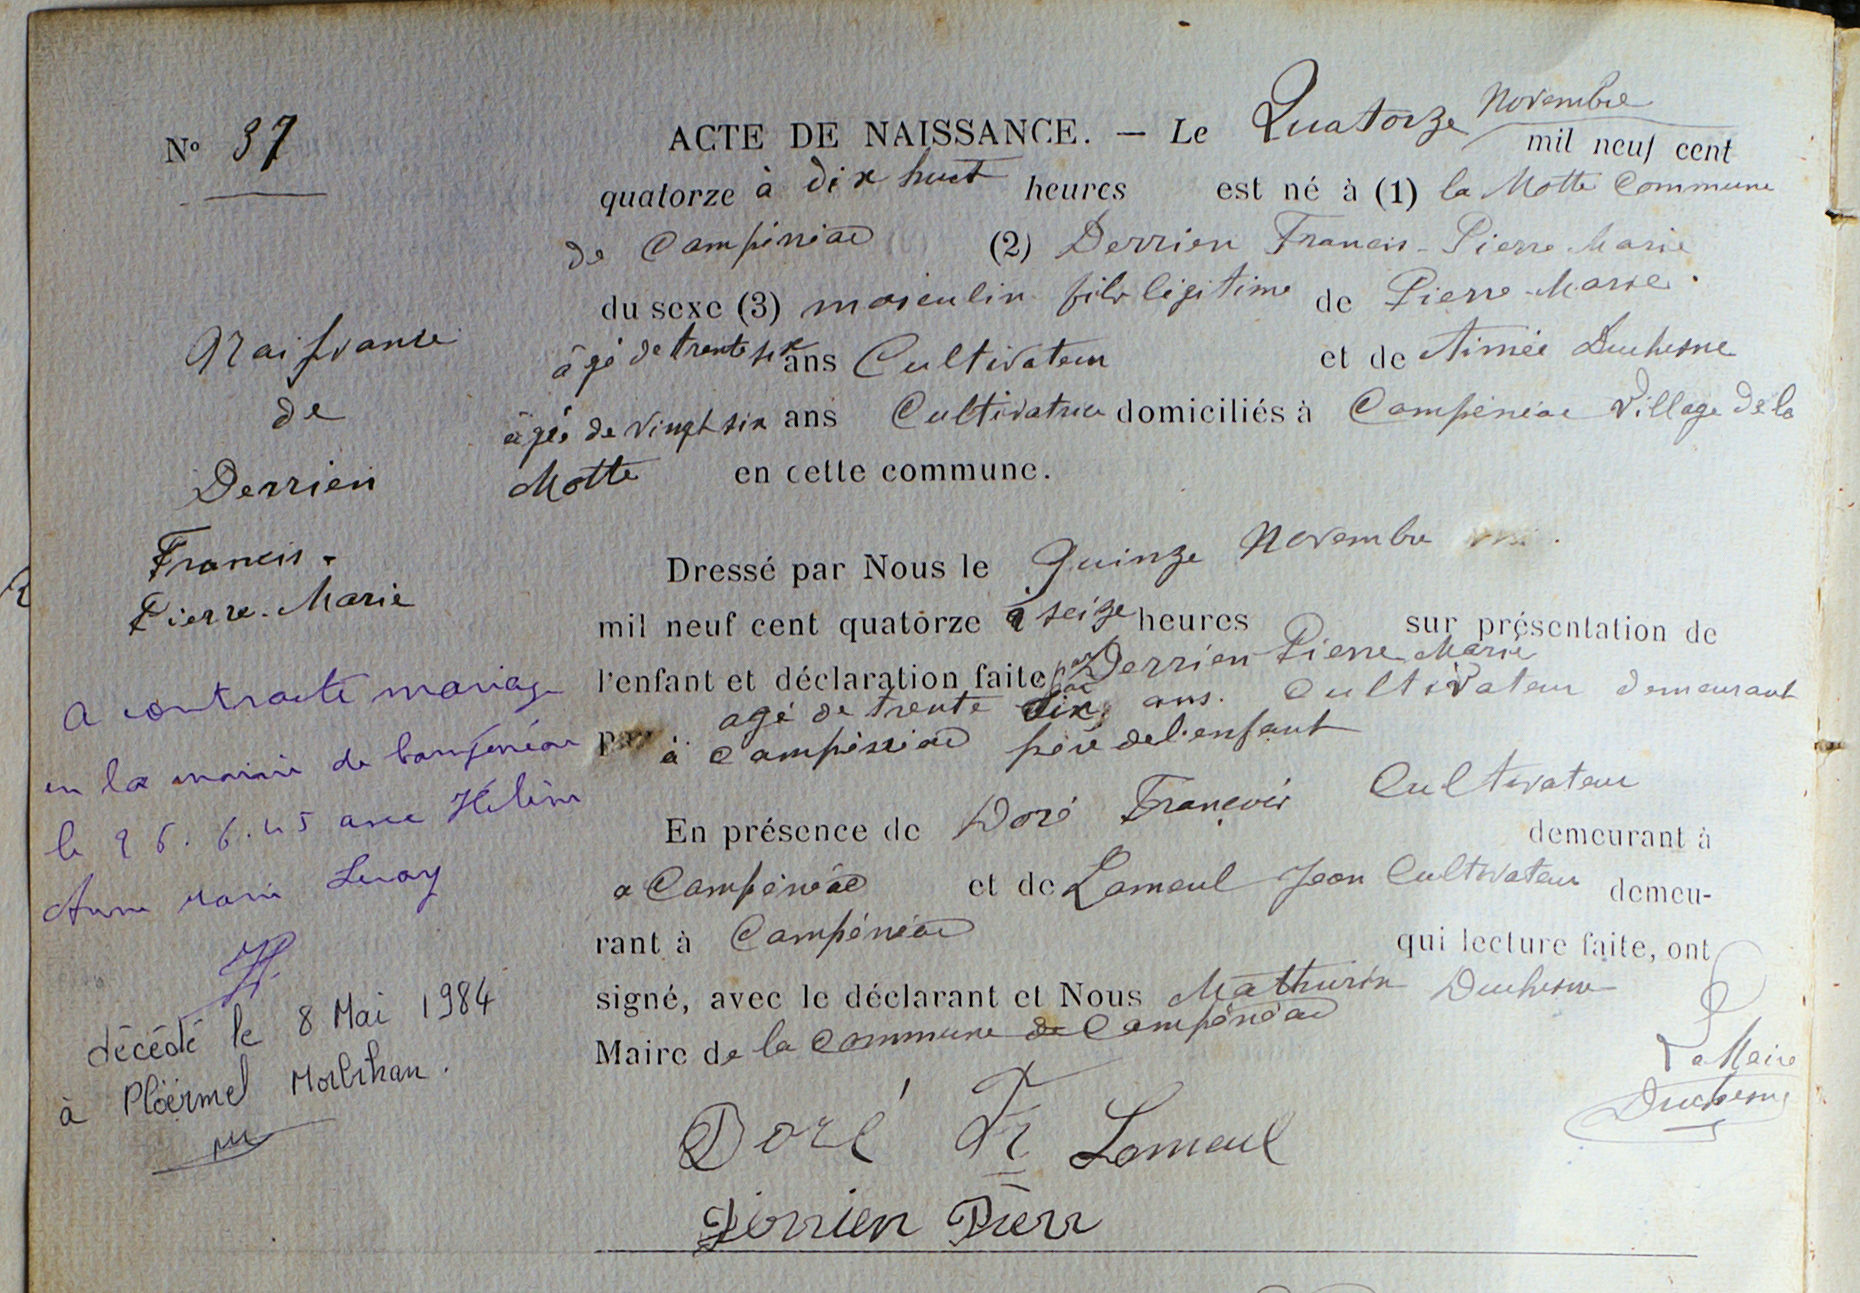 N° 37
ACTE DE NAISSANCE. — Le Quatorze Novembre mil neuf cent
quatorze à dix huit heures est né à (1) la Motte Commune
de Campénéac (2) Derrien Francis-Pierre Marie
du sexe (3) masculin fils légitime de Pierre-Marie
âgé de trente six ans Cultivateur et de Aimée Duchesne
âgée de vingt six ans Cultivatrice domiciliés à Campénéac Village de la
Motte en cette commune.
Dressé par Nous le Quinze Novembre
mil neuf cent quatorze à seize heures sur présentation de
l'enfant et déclaration faite par Derrien Pierre Marie
agé de trente six ans. Cultivateur demeurant
à Campénéac père de l'enfant
En présence de Doré François Cultivateur demeurant à
a Campénéac et de Lameul Jean Cultivateur demeu-
rant à Campénéac qui lecture faite, ont
signé, avec le déclarant et Nous Mathurin Duchesne
Maire de la Commune de Campénéac
Le Maire
Duchesne
Doré Fr Lameul
Derrien Pierr
Naissance
de
Derrien
Francis-
Pierre-Marie
a contracté mariage
en la mairie de Campénéac
le 26.6.45 avec Hélène
Anne Marie
décédé le 8 Mai 1984
à Ploërmel Morbihan.